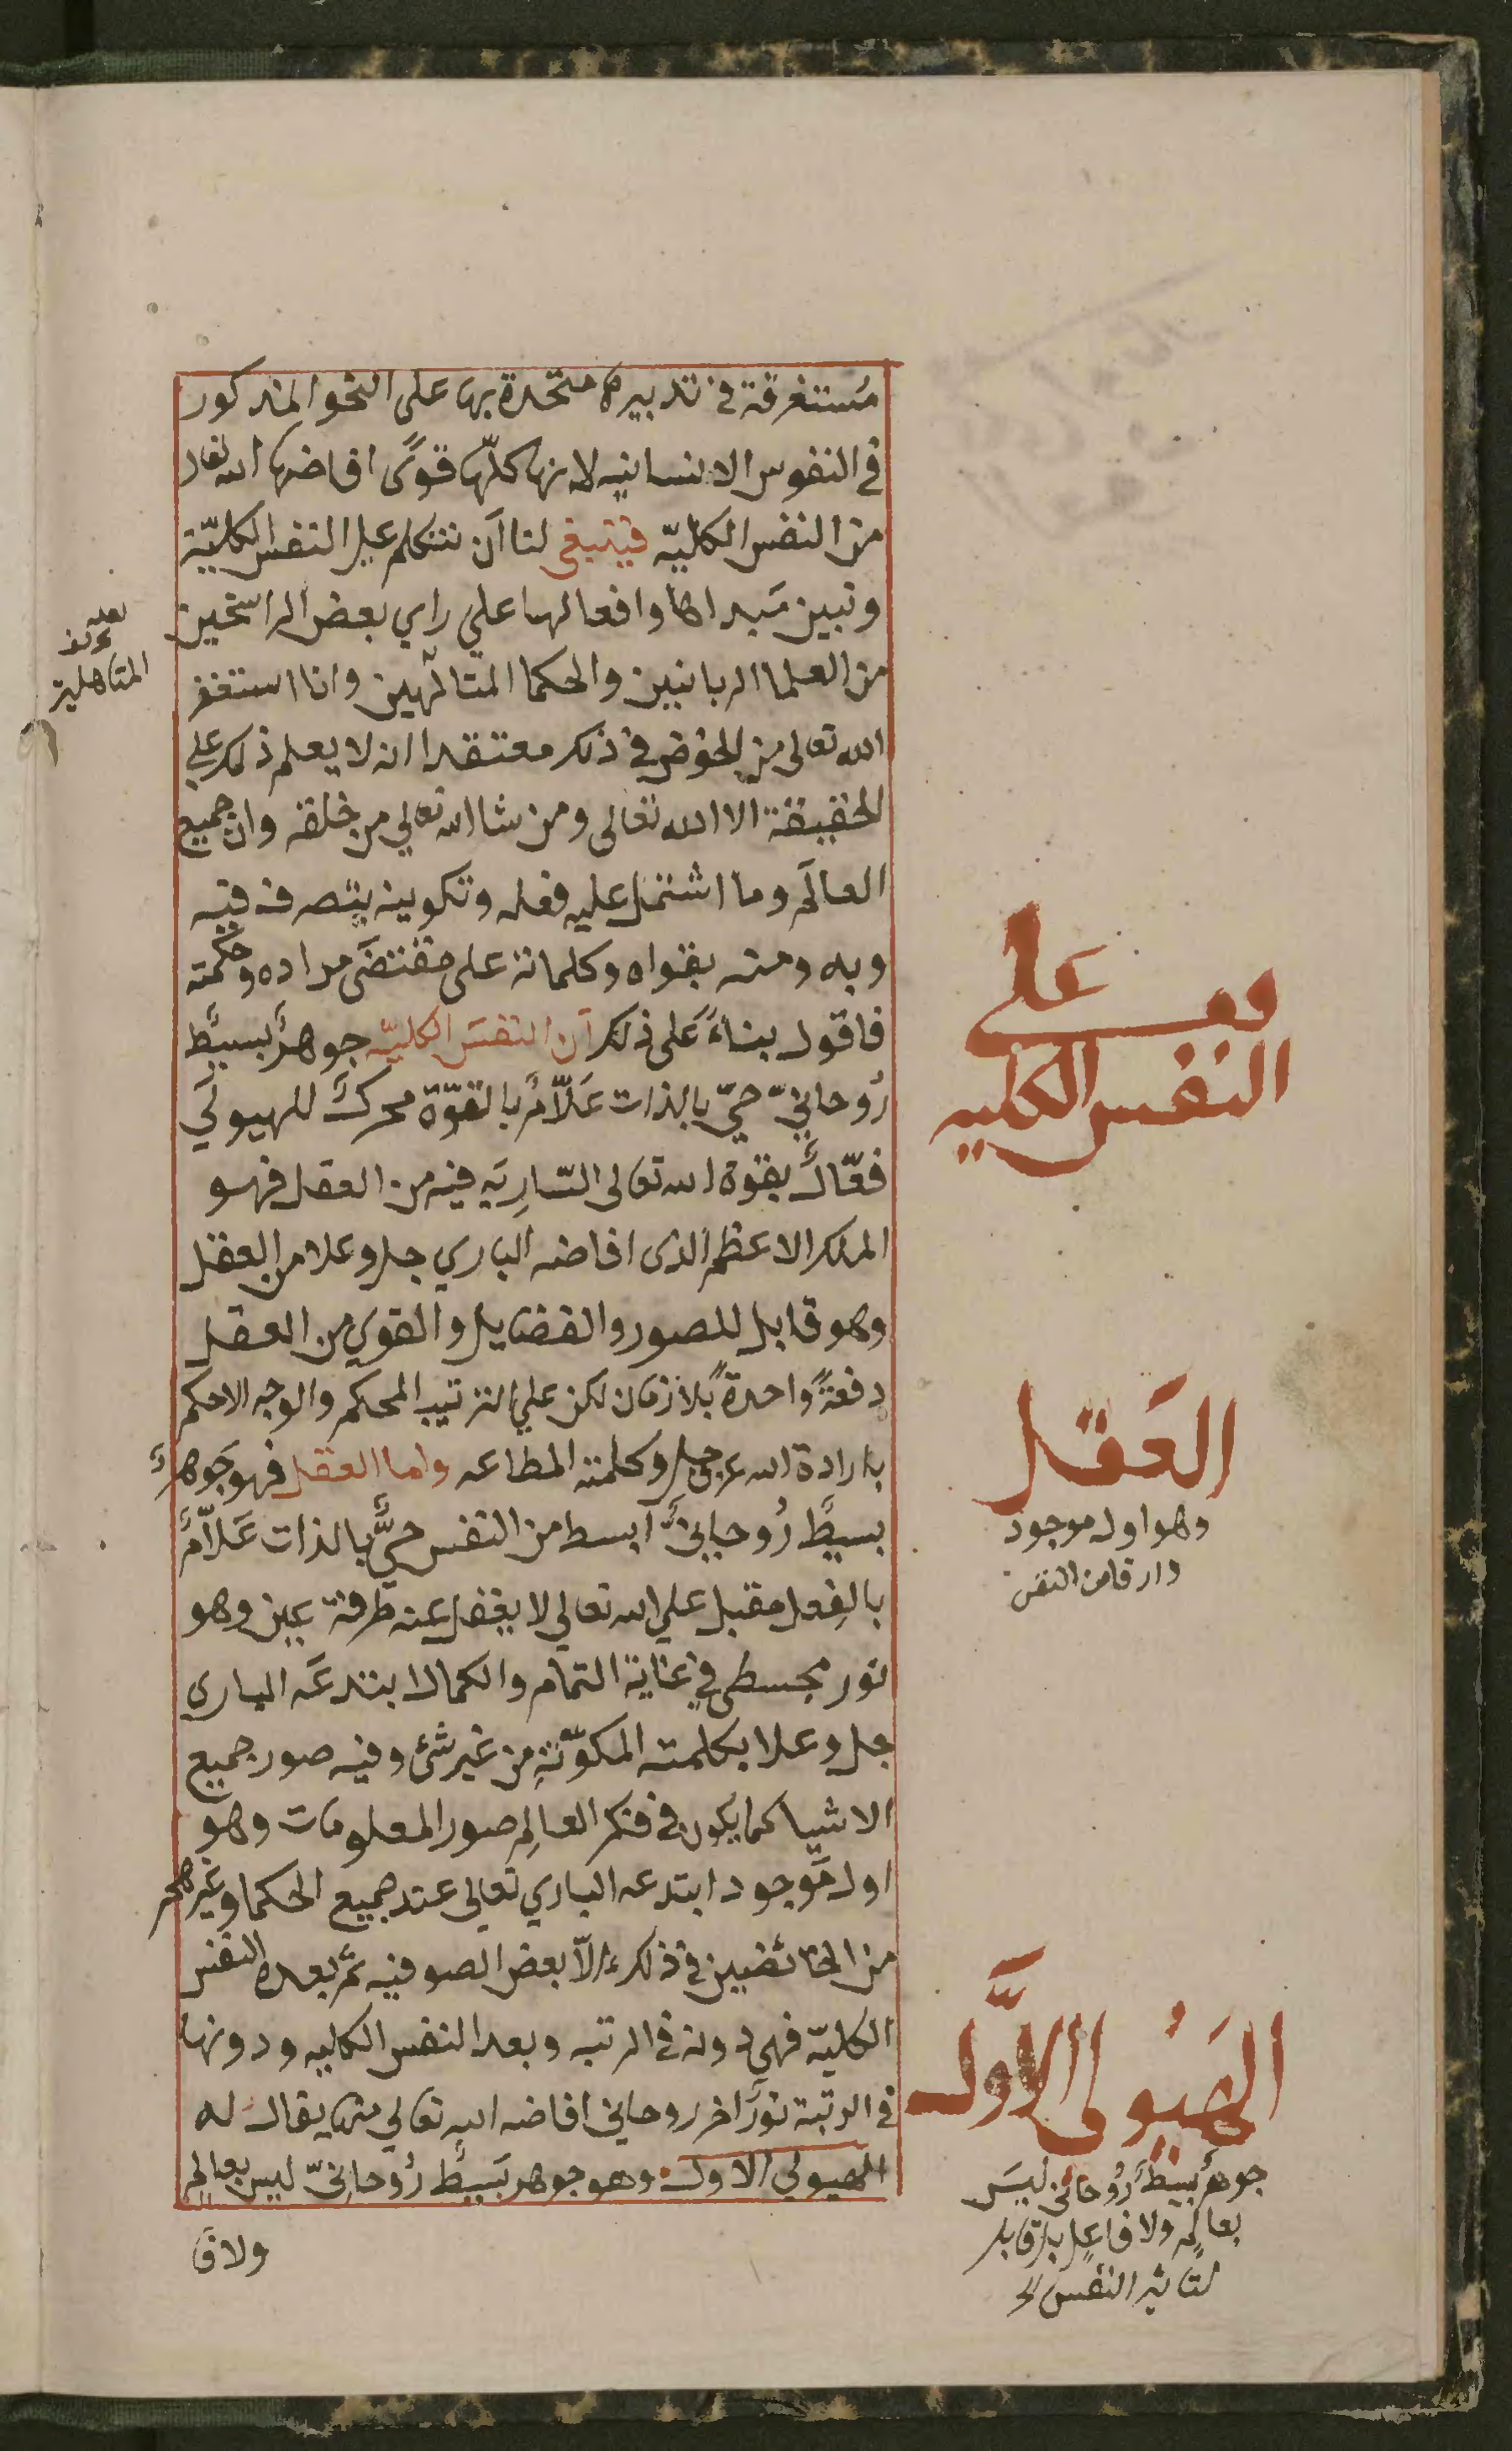 مُستغرقة في تدبيرها متحدة بها على النحو المذكور
في النفوس الانسانيه لانها كلّها قوًى افاضها الله تعالى
من النفس الكليّه فينبغي لنا أن نتكلم على النفس الكليّة
ونبين مَبداها وافعالها علي راي بعض الراسخين
من العلما الربانيين والحكما المتالّهين وانا استغفر
الله تعالى من الخوض في ذلك معتقدا انه لا يعلم ذلك علي
الحقيقة الا الله تعالى ومن شا الله تعالي من خلقه وان جميع
العالَم وما اشتمل عليه فعله وتكوينه يتصرف فيه
وبه ومنه بقواه وكلماته على مقتضَى مراده وحكمته
فاقول بناءً عَلى ذلك أن النفسَ الكليّه جوهرٌ بسيطٌ
رُوحانيّ حيّ بالذات عَلّامٌ بالقوّة محركٌ للهيولَي
فعّالٌ بقوة الله تعالى السّارِيَه فيه من العقل فهو
الملك الاعظم الذى افاضه الباري جل وعلا من العقل
وهو قابل للصور والفضايل والقوي من العقل
دفعةً واحدةً بلا زمان لكن علي الترتيب المحكم والوجه الاحكم
بارادة الله عز وجل وكلمته المطاعه واما العقل فهو جَوهرٌ
بسيطٌ رُوحانيٌّ أبسط من النفس حيٌّ بالذات عَلّامٌ
بالفِعل مقبل علي الله تعالي لا يغفل عنه طرفة عين وهو
نور في غاية التمام والكمال ابتدعَه البارى
جل وعلا بكلمته المكوّنةِ من غير شئ وفيه صور جميع
الاشيا كما يكون في فكر العالِم صور المعلومات وهو
اول مَوجود ابتدعه الباري تعالي عند جميع الحكما وغيرهم
من الخائضين في ذلك الّا بعض الصوفيه ثم بعده النفس
الكليّه فهي دونه في الرتبه وبعد النفس الكليه ودونها
في الرتبة نورٌ اخر روحاني افاضه الله تعالي منها يقال له
الهيولي الاول وهو جوهر بَسيطٌ رُوحانيّ ليس بعالِم
ولا فَا
المتاهلين
على
النفس الكليه
العَقل
وهو اول موجود
وارقا من النفس
الهَيُولى الاوَّل
جوهرٌ بسيطٌ رُوحاني ليسَ
بعالِم ولا فاعِلٍ بل قابل
لتاثير النفس الخ